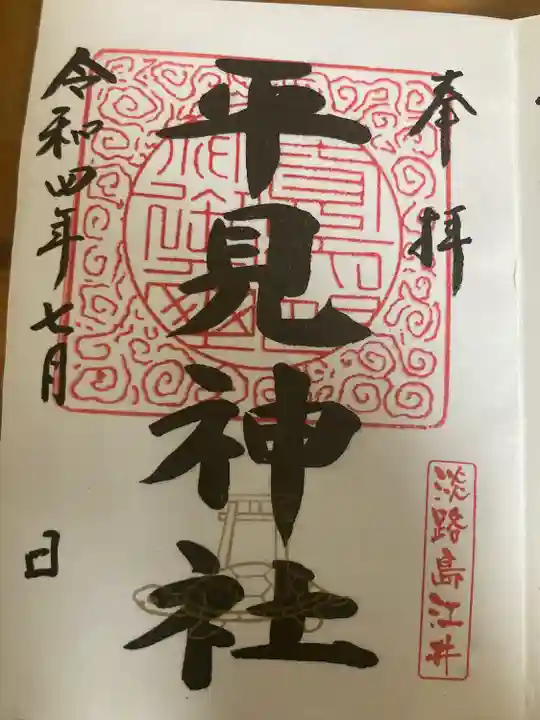 奉拝
平見神社
令和四年七月 日
淡路島江井